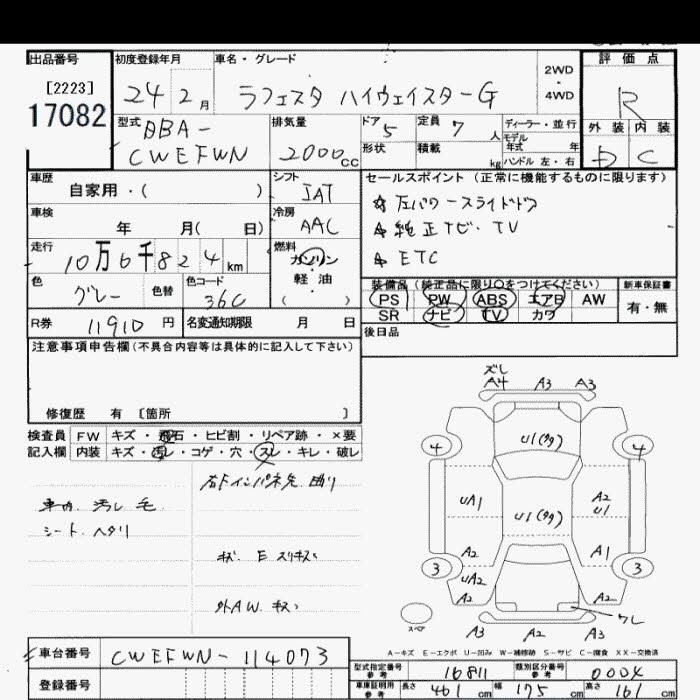 出品番号 初度登録年月 車名・グレード 2WD・4WD 評価点
[2223]
17082
24 2月 ラフェスタ ハイウェイスターG R
型式 排気量 ドア 定員 ディーラー・並行 外装 内装
DBA- 5 7人 モデル年式 年
CWEFWN 2000cc 形状 積載 kg ハンドル 左・右 D C
車歴 シフト セールスポイント(正常に機能するものに限ります)
自家用・( ) IAT
☆左パワースライドドア
車検 冷房
年 月( 日) AAC ☆純正ナビ・TV
走行 燃料
10万6千824km ガソリン ☆ETC
色 色替 色コード 軽油
グレー 36C ( )
装備品(純正品に限り〇をつけてください) 新車保証書
PS PW ABS エアB AW 有・無
SR ナビ TV カワ
R券 11910円 名変通知期限 月 日
後日品
注意事項申告欄(不具合内容等は具体的に記入して下さい)
修復歴 有 〔箇所 〕
検査員 FW キズ・飛石・ヒビ割・リペア跡・×要
記入欄 内装 キズ・汚レ・コゲ・穴・スレ・キレ・破レ
右Fインパネ先 曲り
車内 汚レ 毛
シート ヘタリ
キズ E スリキズ
外AW キズ
ズレ
A4 A3 A3
U1(タタ)
4 4
UA1 U1(タタ) A2
U1
A2 A1
3 3
UA2
A2 A2
ワレ
スペア A3 A2 A3
A-キズ E-エクボ U-凹み W-補修跡 S-サビ C-腐食 XX-交換済
車台番号 CWEFWN-114073
登録番号
型式指定番号 参考 16811 類別区分番号 参考 0004
車庫証明用 参考 長さ 461cm 幅 175cm 高さ 161cm